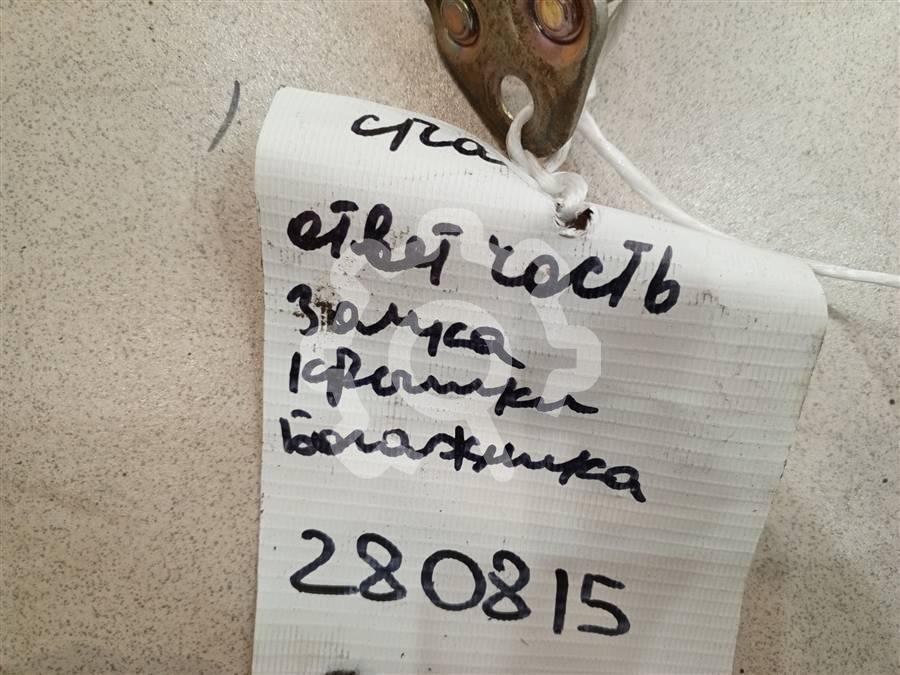 ответ часть
замка
крышки
багажника
280815